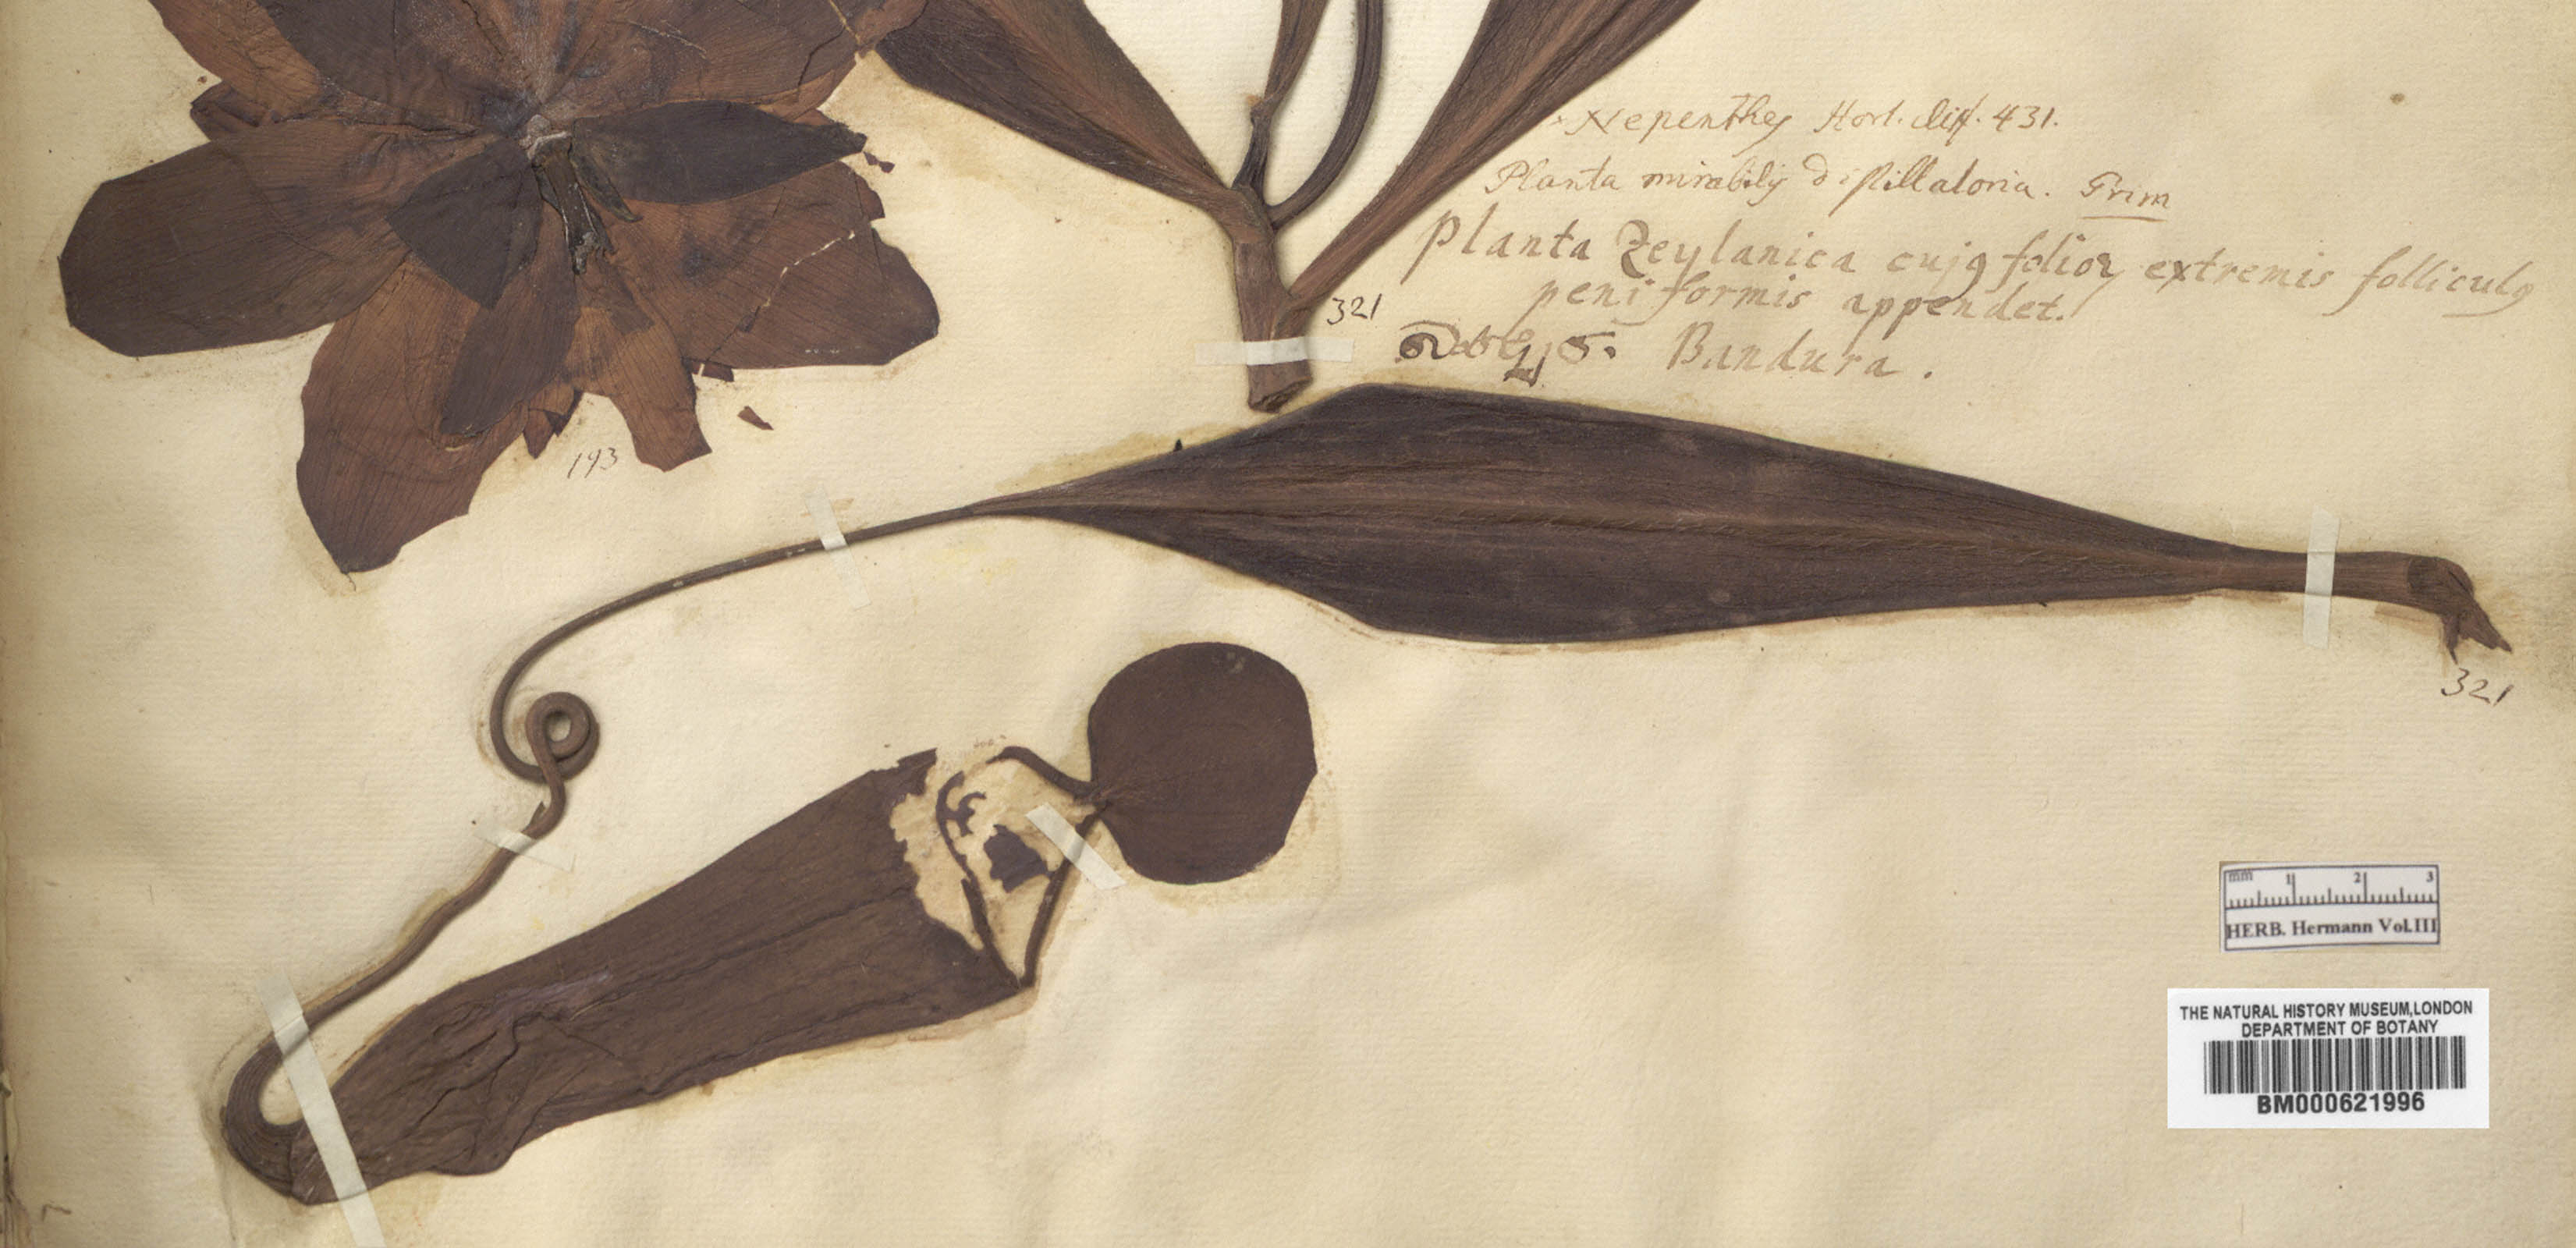 Nepenthes Hort. cliff. 431.
Planta mirabilis distillatoria. Grim
Planta Zeylanica cujq folior extremis folliculq
peniformis appendet.
Bandura.
321
193
321
mm 1 2 3
HERB. Hermann Vol.III
THE NATURAL HISTORY MUSEUM,LONDON
DEPARTMENT OF BOTANY
BM000621996